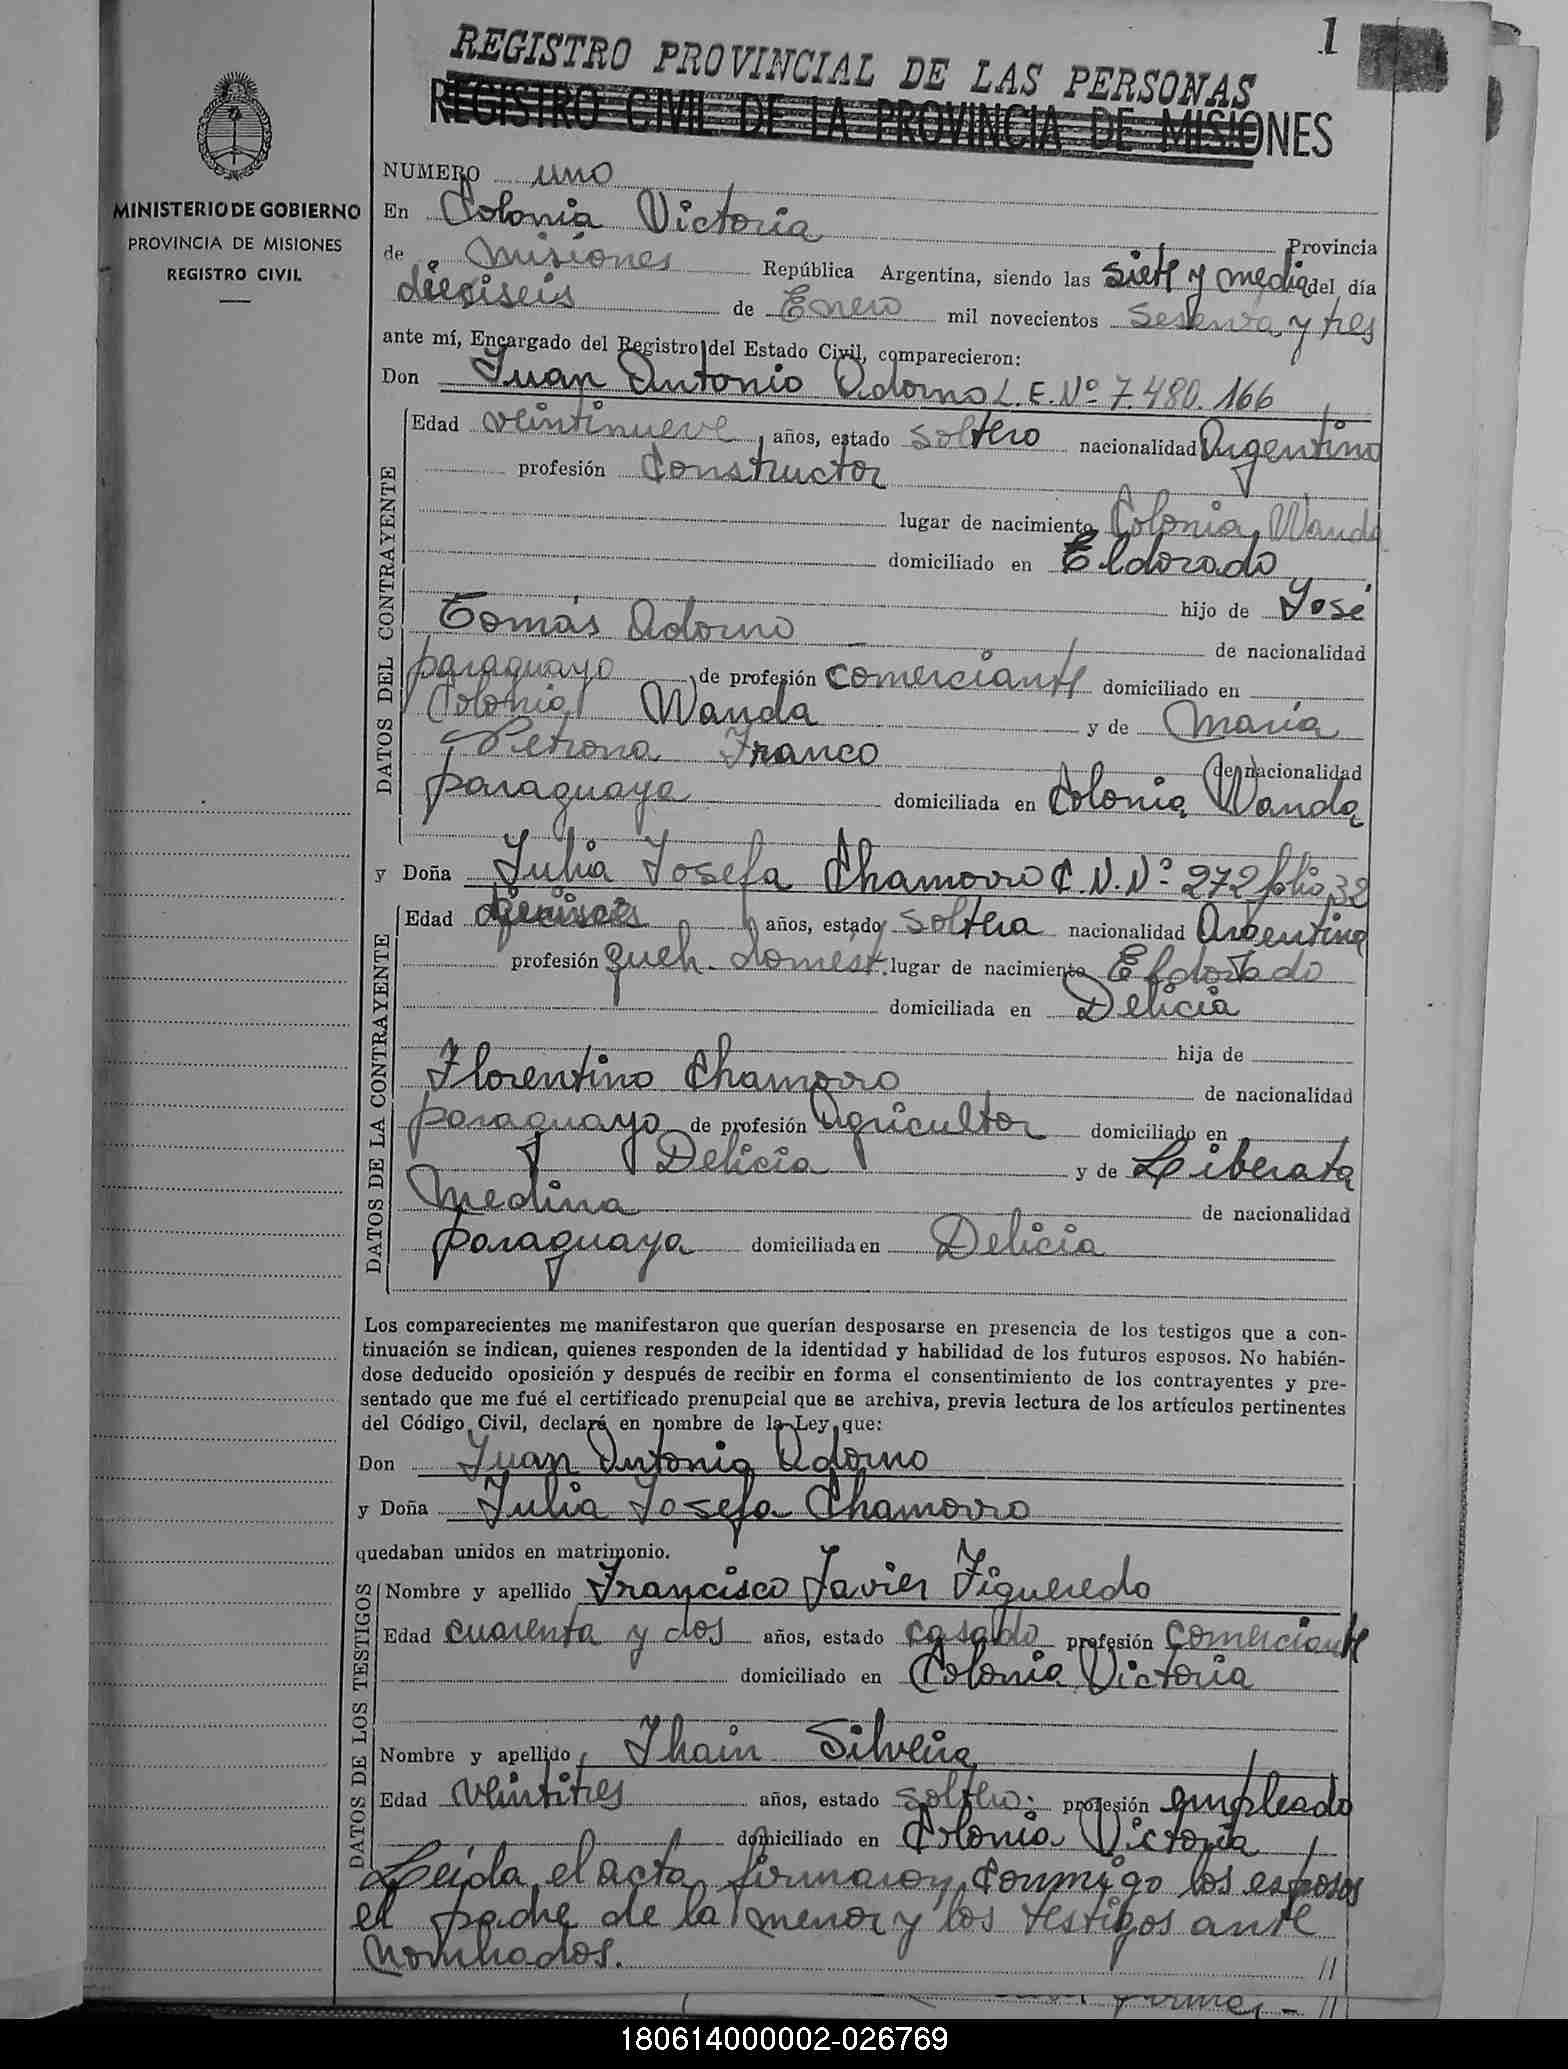 1
REGISTRO PROVINCIAL DE LAS PERSONAS
REGISTRO CIVIL DE LA PROVINCIA DE MISIONES
MINISTERIO DE GOBIERNO
PROVINCIA DE MISIONES
REGISTRO CIVIL
NUMERO uno
En Colonia Victoria Provincia
de Misiones República Argentina, siendo las siete y media del día
dieciseis de Enero mil novecientos sesenta y tres
ante mí, Encargado del Registro del Estado Civil, comparecieron:
Don Juan Antonio Adorno L. E. Nº 7.480.166
DATOS DEL CONTRAYENTE
Edad veintinueve años, estado soltero nacionalidad Argentino
profesión Constructor
lugar de nacimiento Colonia Wanda
domiciliado en Eldorado
hijo de José
Tomás Adorno de nacionalidad
paraguayo de profesión comerciante domiciliado en
Colonia Wanda y de María
Petrona Franco de nacionalidad
paraguaya domiciliada en Colonia Wanda
y Doña Julia Josefa Chamorro C. N. Nº 272 folio 32
DATOS DE LA CONTRAYENTE
Edad dieciseis años, estado soltera nacionalidad Argentina
profesión queh. domést. lugar de nacimiento Eldorado
domiciliada en Delicia
hija de
Florentino Chamorro de nacionalidad
paraguayo de profesión Agricultor domiciliado en
Delicia y de Liberata
Medina de nacionalidad
paraguaya domiciliada en Delicia
Los comparecientes me manifestaron que querían desposarse en presencia de los testigos que a con-
tinuación se indican, quienes responden de la identidad y habilidad de los futuros esposos. No habién-
dose deducido oposición y después de recibir en forma el consentimiento de los contrayentes y pre-
sentado que me fué el certificado prenupcial que se archiva, previa lectura de los artículos pertinentes
del Código Civil, declaré en nombre de la Ley que:
Don Juan Antonio Adorno
y Doña Julia Josefa Chamorro
quedaban unidos en matrimonio.
DATOS DE LOS TESTIGOS
Nombre y apellido Francisco Javier Figueredo
Edad cuarenta y dos años, estado casado profesión comerciante
domiciliado en Colonia Victoria
Nombre y apellido Jhain Silveira
Edad veintitres años, estado soltero. profesión empleado
domiciliado en Colonia Victoria
Leída el acta, firmaron conmigo los esposos
el padre de la menor y los testigos ante
nombrados. //
180614000002-026769